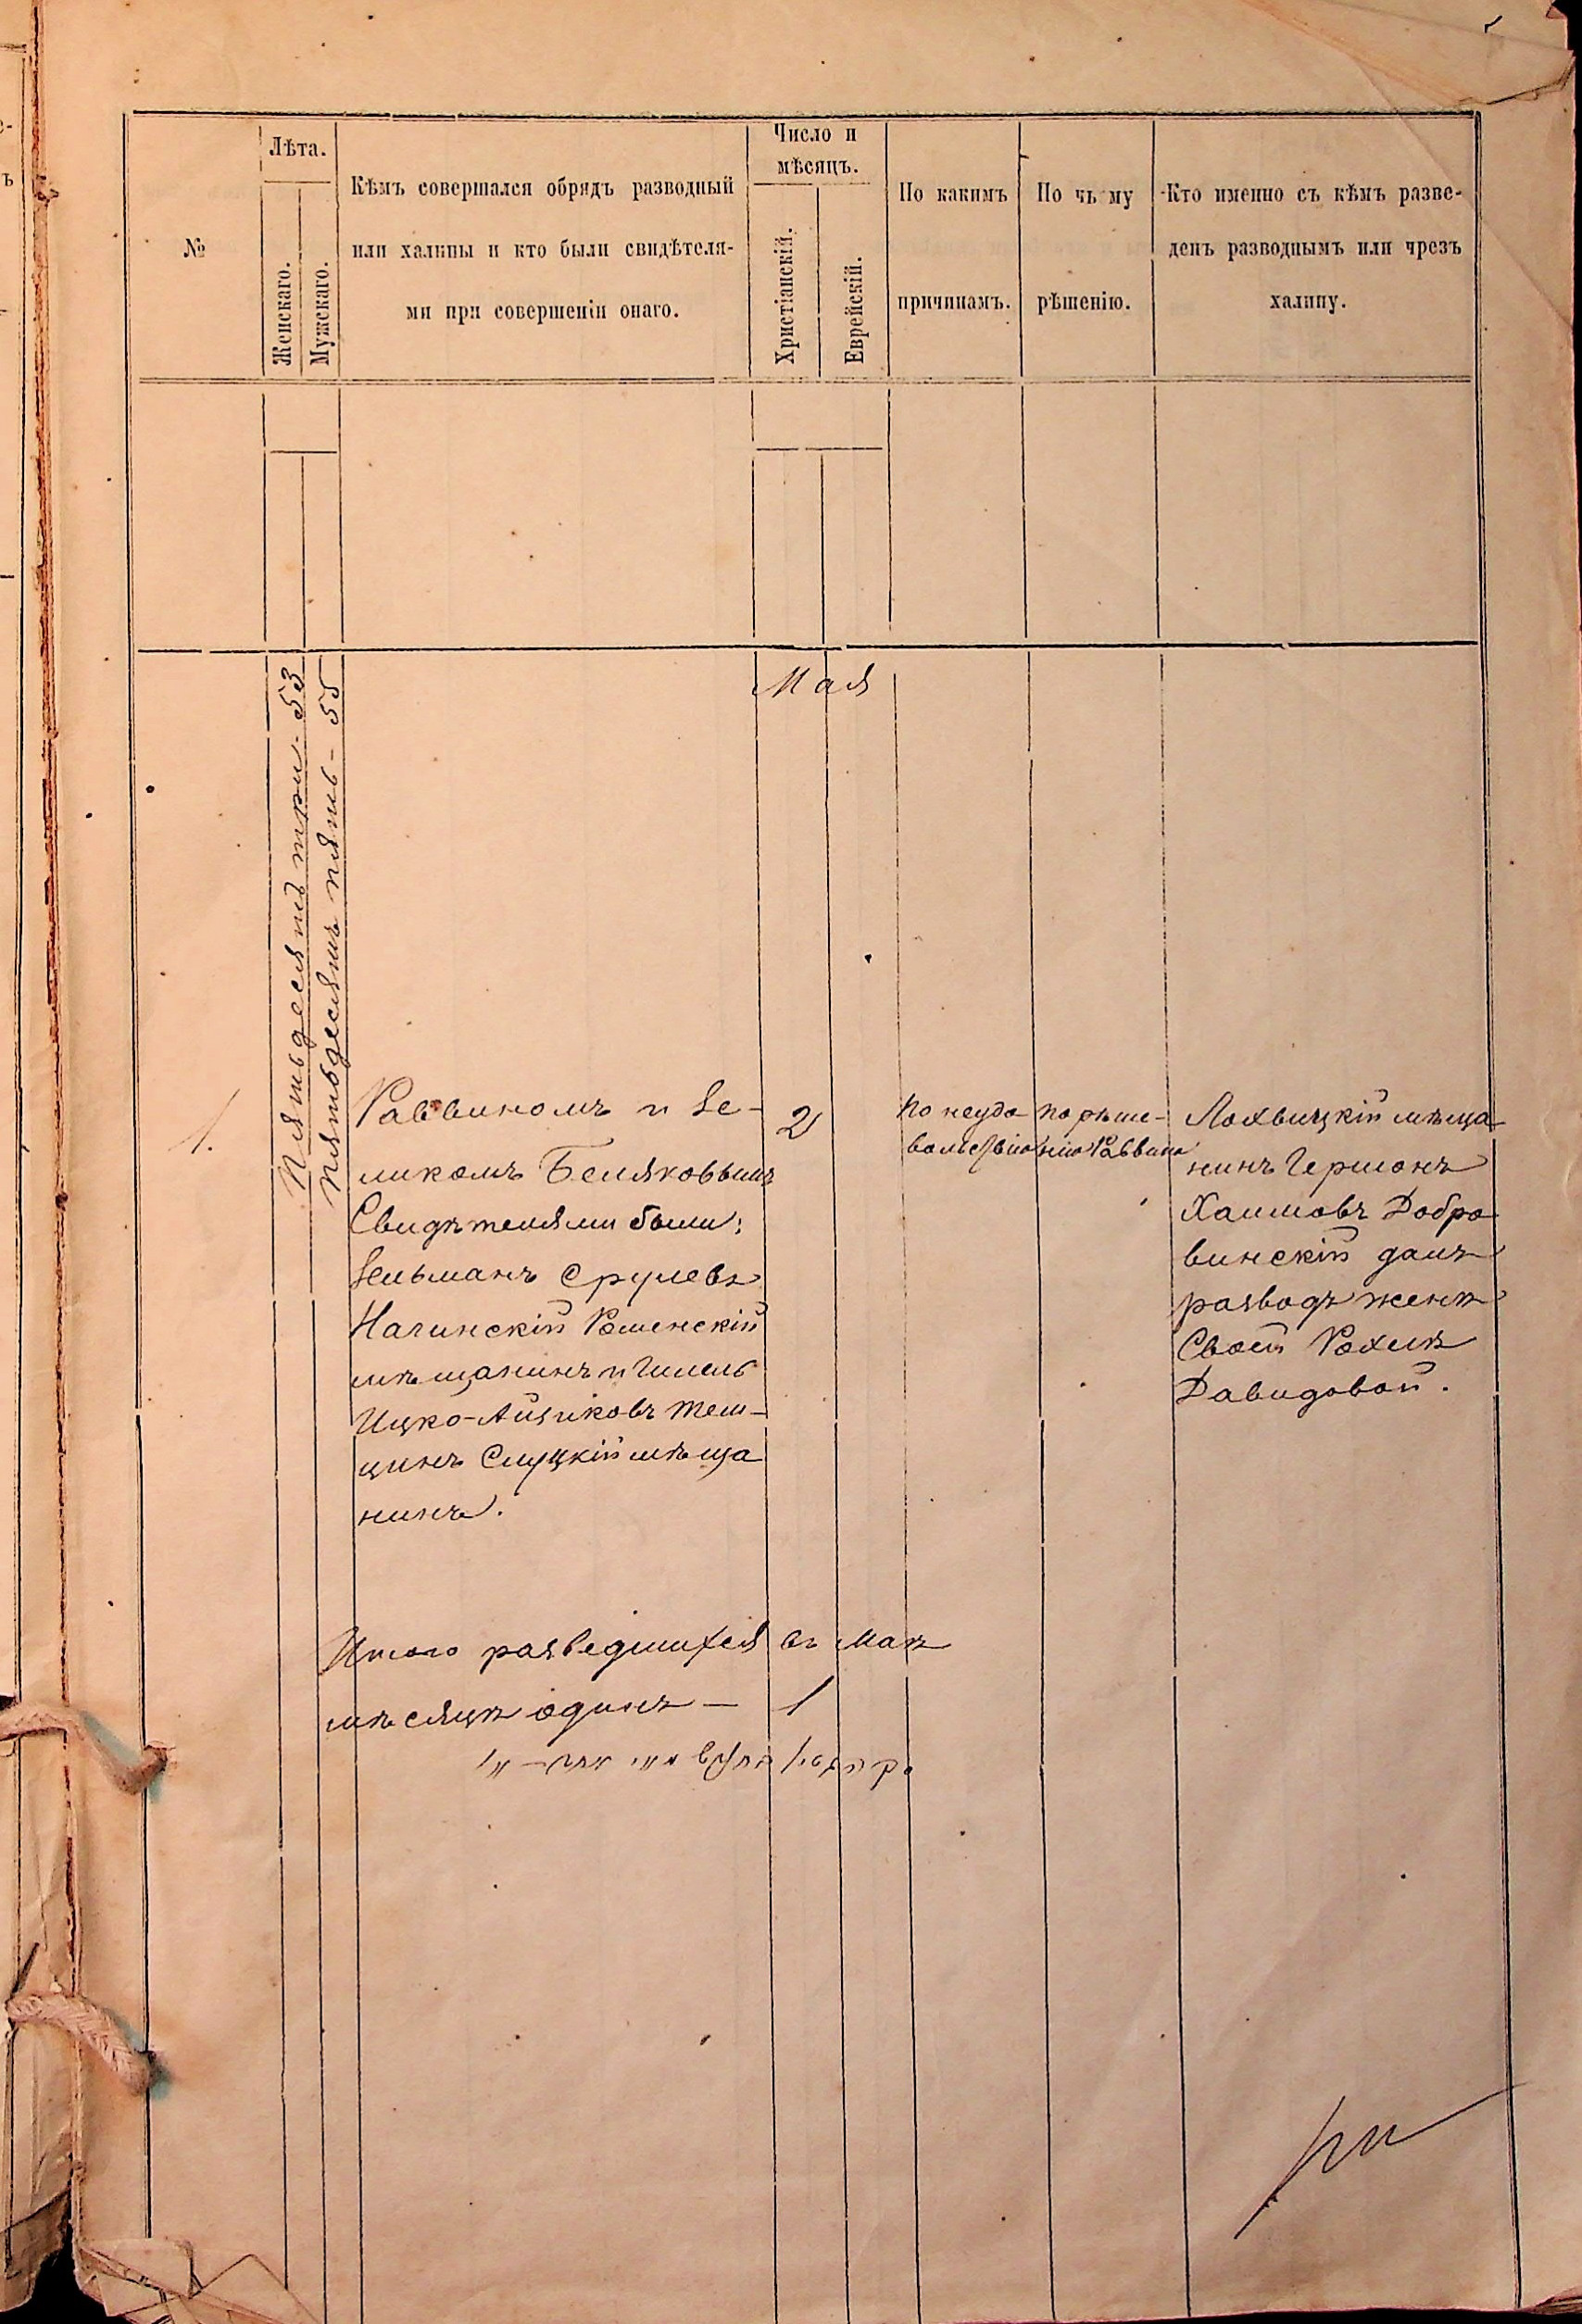 №
Лѣта.
Женскаго.
Мужскаго.
Кѣмъ совершался обрядъ разводный
или халицы и кто были свидѣтеля-
ми при совершеніи онаго.
Число и
мѣсяцъ.
Христіанскій.
Еврейскій.
По какимъ
причинамъ.
По чь му
рѣшенію.
Кто именно съ кѣмъ разве-
денъ разводнымъ или чрезъ
халицу.
Мая
1.
Пятьдесятъ три - 53
Пятьдесятъ пять - 55
Раввиномъ
ликомъ Беляковымъ
Свидѣтелями были:
Зельманъ Срулевъ
Роменскій
мѣщанинъ и
Ицко-Айзиковъ
цинъ Слуцкій мѣща
нинъ.
2
По неудо
вольствію
по рѣше-
нію Раввина
Лохвицкій мѣща
нинъ Гершонъ
Хаимовъ Добро
винскій далъ
разводъ женѣ
Своей Рохлѣ
Давидовой.
Итого разведшихся въ Маѣ
мѣсяцѣ одинъ — 1